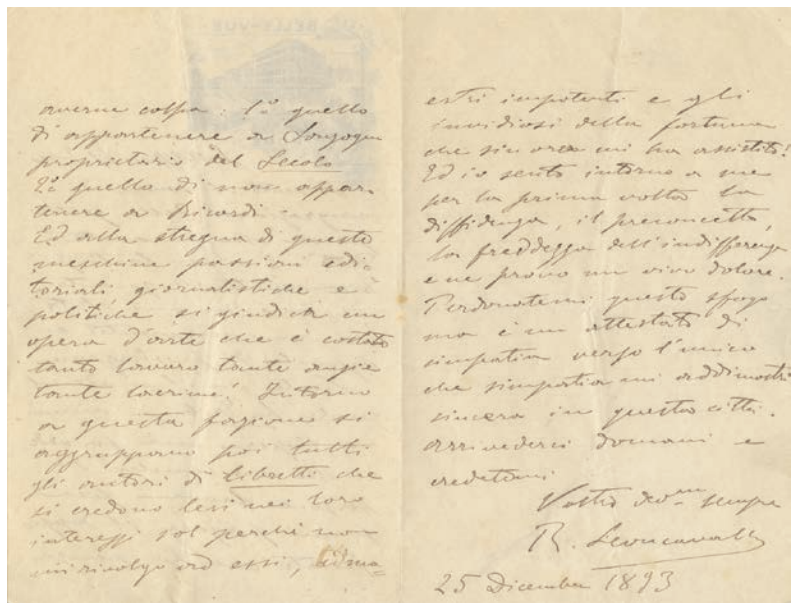 averne colpa: 1º quello
di appartenere a Sonzogno
proprietario del Secolo
2º quello di non appar-
tenere a Ricordi -
Ed alla stregua di queste
meschine passioni edi-
toriali giornalistiche e
politiche si giudica un
opera d'arte che è costata
tanto lavoro tante angie
tante lacrime! Intorno
a questa fazione si
aggruppano poi tutti
gli autori di libretti che
si credono lesi nei loro
interessi sol perchè non
mi rivolgo ad essi,
estri impotenti e gli
invidiosi della fortuna
che sin ora mi ha assistito!
Ed io sento intorno a me
per la prima volta la
diffidenza, il preconcetto,
la freddezza dell'indifferenza
e ne provo un vivo dolore.
Perdonatemi questo sfogo
ma è un attestato di
simpatia verso l'unico
che simpatia mi addimostri
sincera in questa città.
Arrivederci domani e
credetemi
Vostro devmo sempre
R. Leoncavallo
25 Dicembre 1893